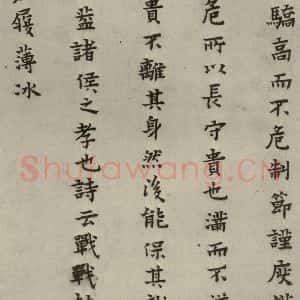 驕高而不危制節謹度
危所以長守貴也滿而不
貴不離其身然後能保其
蓋諸侯之孝也詩云戰戰
履薄冰
Shufawang.CN